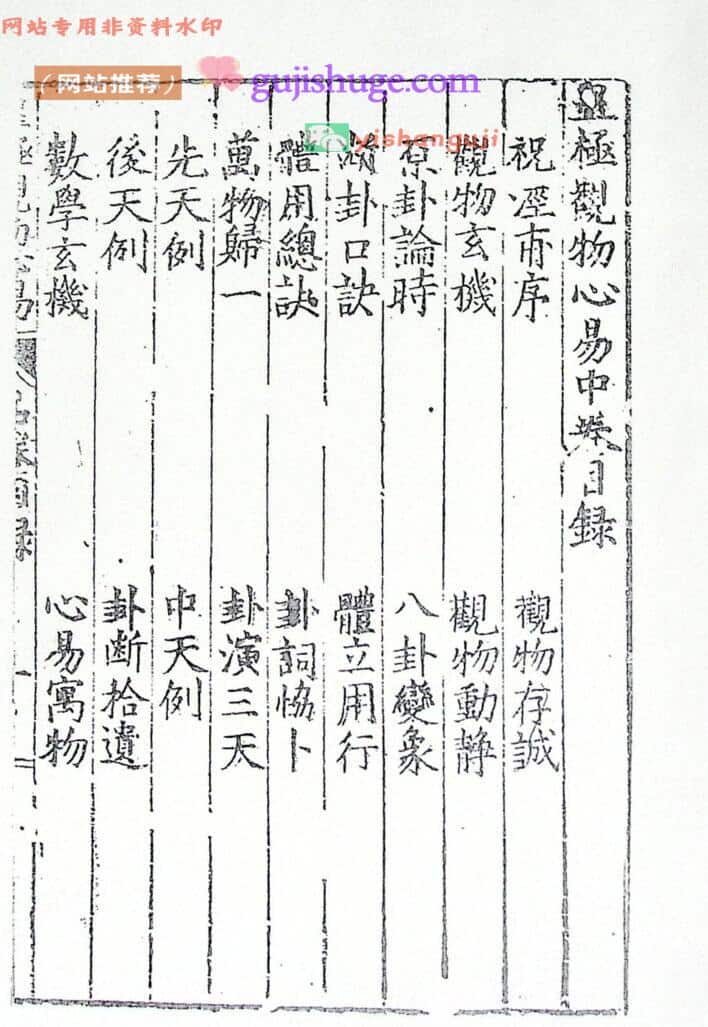 网站专用非资料水印
（网站推荐）
gujishuge.com
yishanguji
皇極觀物心易中卷目録
祝泾甫序 觀物存誠
觀物玄機 觀物動静
原卦論時 八卦變象
卦口訣 體立用行
體用總訣 卦詞恊卜
萬物歸一 卦演三天
先天例 中天例
後天例 卦断拾遺
數學玄機 心易寓物